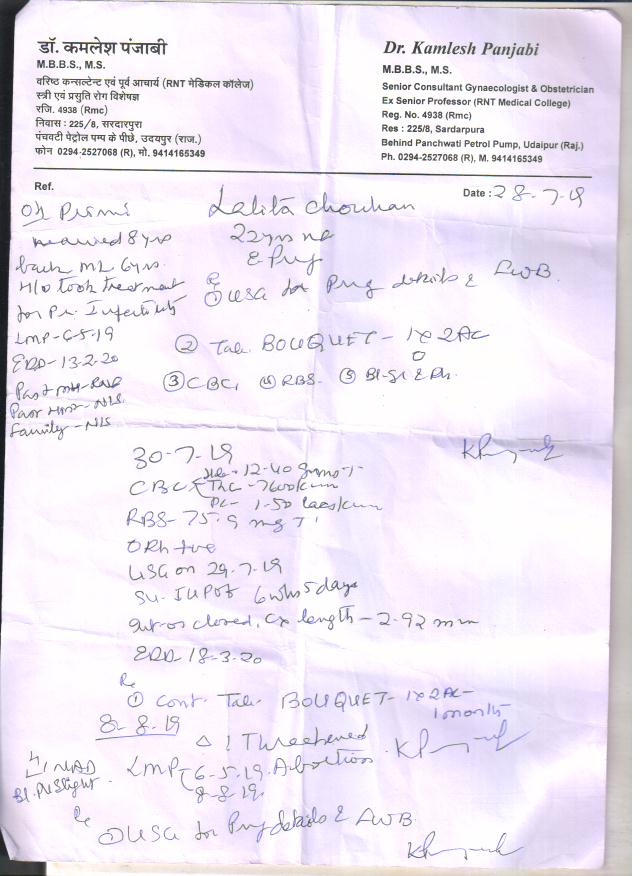 डॉ. कमलेश पंजाबी
M.B.B.S., M.S.
वरिष्ठ कन्सल्टेन्ट एवं पूर्व आचार्य (RNT मेडिकल कॉलेज)
स्त्री एवं प्रसुति रोग विशेषज्ञ
रजि. 4938 (Rmc)
निवास : 225/8, सरदारपुरा
पंचवटी पेट्रोल पम्प के पीछे, उदयपुर (राज.)
फोन 0294-2527068 (R), मो. 9414165349
Dr. Kamlesh Panjabi
M.B.B.S., M.S.
Senior Consultant Gynaecologist & Obstetrician
Ex Senior Professor (RNT Medical College)
Reg. No. 4938 (Rmc)
Res : 225/8, Sardarpura
Behind Panchwati Petrol Pump, Udaipur (Raj.)
Ph. 0294-2527068 (R), M. 9414165349
Ref.
Date : 28-7-19
Lalita Chouhan
22yrs
Primi
married 8 yrs
back ML 6yrs
H/o took treatment
for Pr. Infertility
LMP-6-5-19
EDD-13-2-20
Family - NIS
① USG for Preg details & LWB
② Tab. BOUQUET - 1x2AC
③ CBC, ④ RBS- ⑤ Bl-Gr & Rh.
30-7-19
CBC Hb - 12-40 gms
TLC - 7600/cum
PC - 1-50 lacs/cum
RBS- 75-9 mg
O Rh +ve
USG on 29-7-19
6 wks 5 days
Int-os closed, Cx length - 2-92 mm
EDD-18-3-20
Rx
① Cont. Tab. BOUQUET- 1x2AC-
1 month
8-8-19
Δ ? Threatened
Abortion
LMP- 6-5-19
8-8-19.
NAD
Rx
① USG for Preg details & LWB